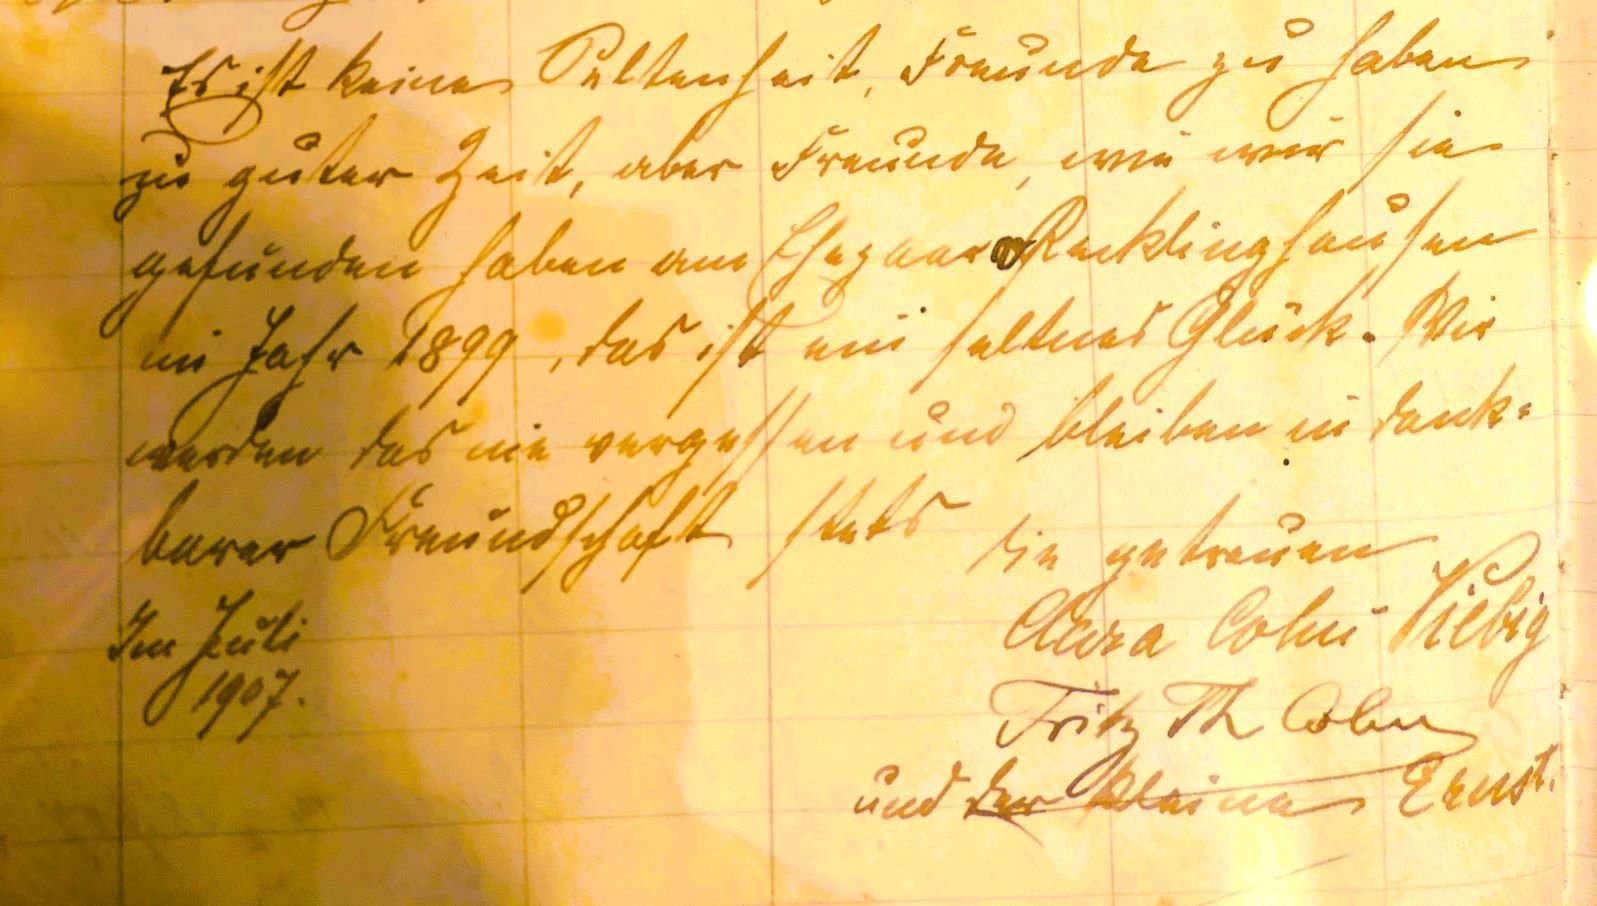 Es ist keine Seltenheit, Freunde zu haben
zu guter Zeit, aber Freunde, wie wir sie
gefunden haben am Ehepaar Recklinghausen
im Jahr 1899, das ist ein seltnes Glück. Wir
werden das nie vergessen und bleiben in dank=
barer Freundschaft stets
die getreuen
Im Juli
1907.
Clara Cohn Viebig
Fritz Th Cohn
und der kleine Ernst.